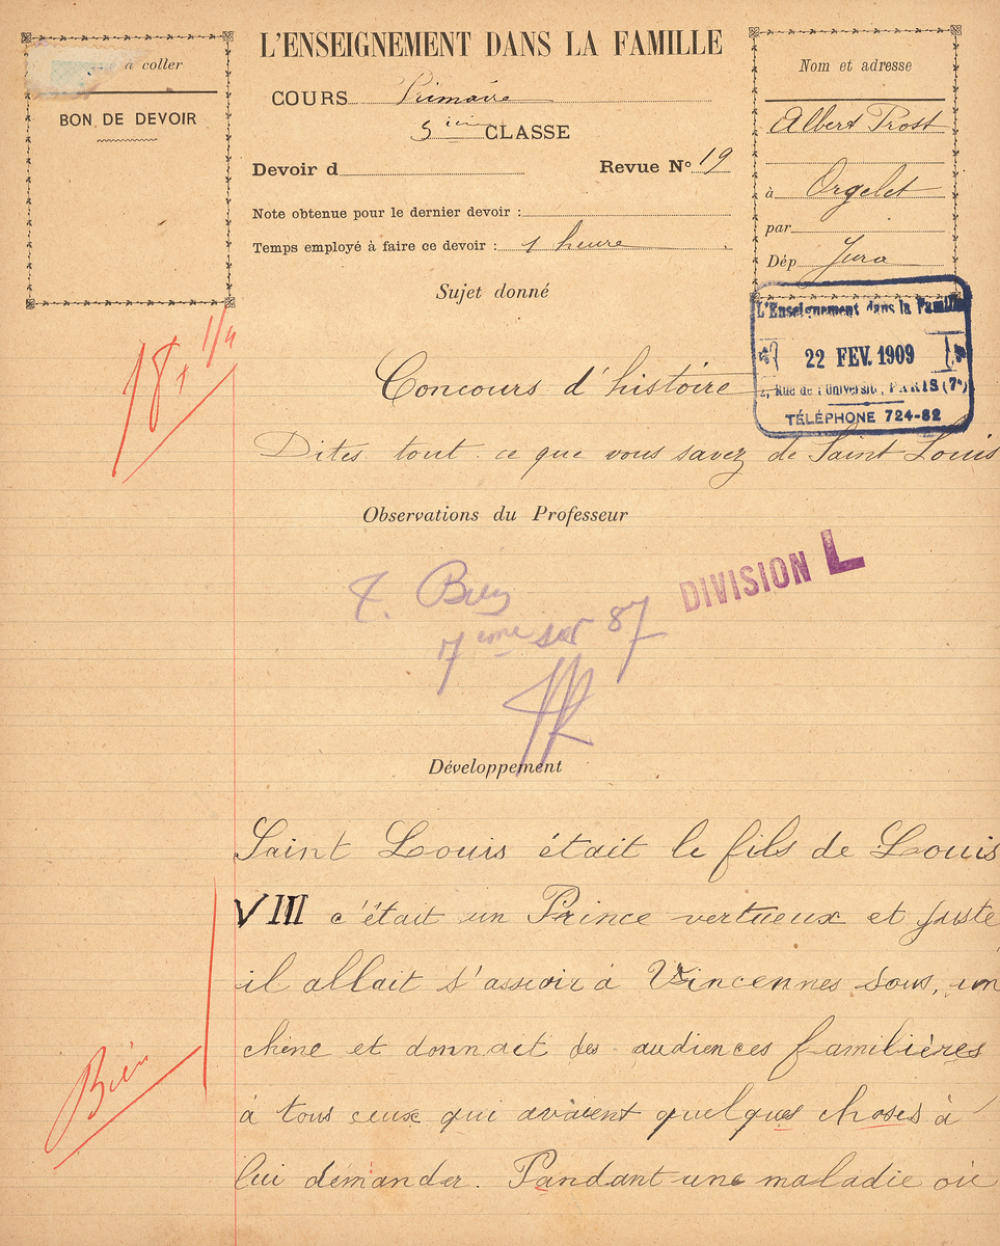 L'ENSEIGNEMENT DANS LA FAMILLE
à coller
BON DE DEVOIR
COURS Primaire
5ième CLASSE
Devoir d
Revue Nº 19
Note obtenue pour le dernier devoir :
Temps employé à faire ce devoir : 1 heure
Nom et adresse
Albert Prost
à Orgelet
par
Dép Jura
Sujet donné
L'Enseignement dans la Famille
22 FEV. 1909
2, Rue de l'Université, PARIS (7e)
TÉLÉPHONE 724-82
18 1/4
Concours d'histoire
Dites tout ce que vous savez de Saint Louis
Observations du Professeur
DIVISION L
T. Bien
7ème sur 87
Développement
Saint Louis était le fils de Louis
VIII c'était un Prince vertueux et juste
il allait s'asseoir à Vincennes sous, un
chêne et donnait des audiences familières
à tous ceux qui avaient quelques choses à
Bien
lui demander. Pandant une maladie où